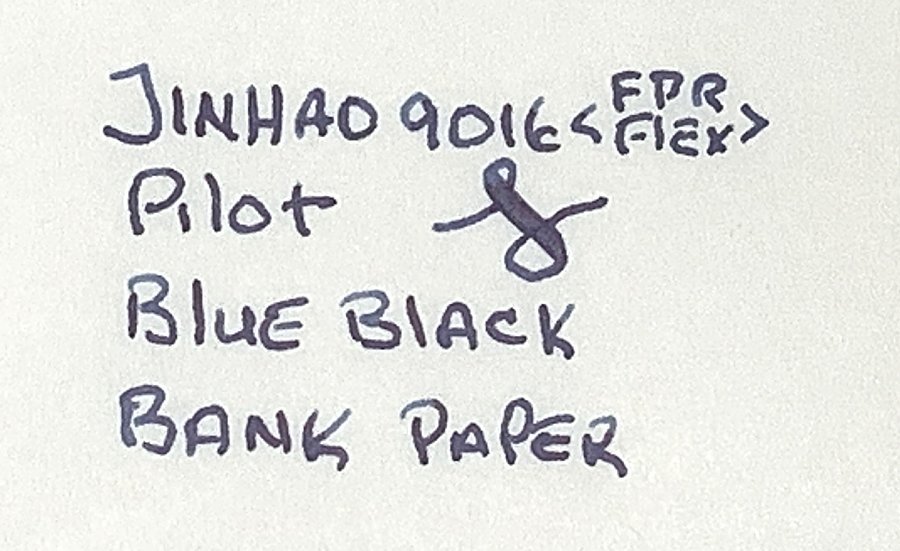 JINHAO 9016 <FPR FlEX>
Pilot
BluE BlACK
BANK PAPER